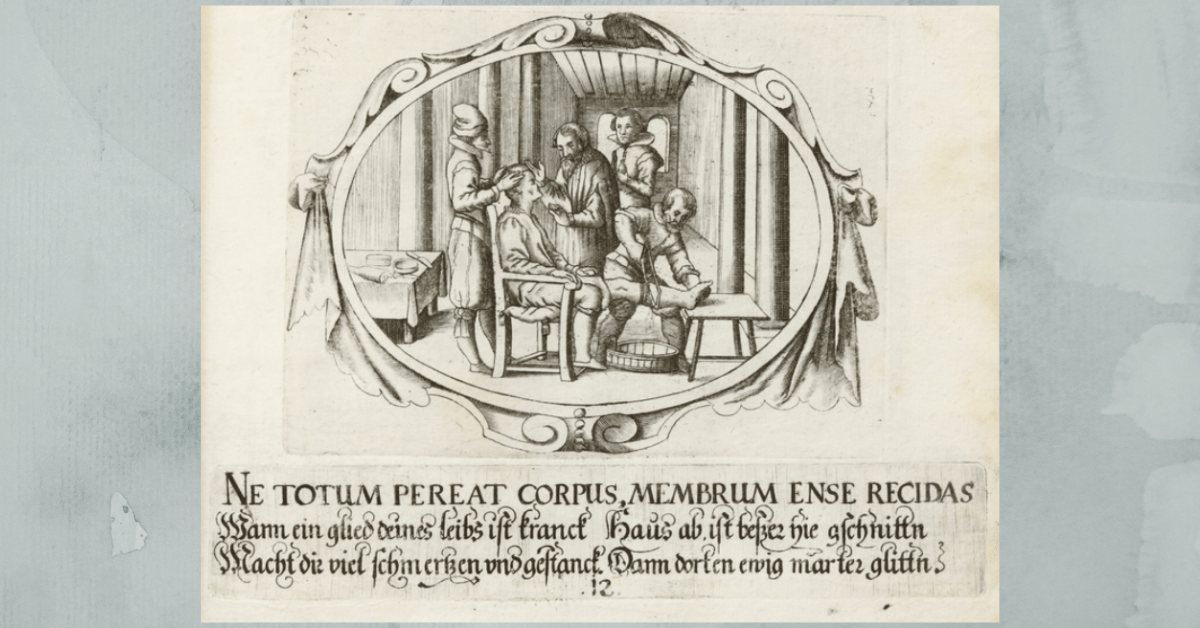 NE TOTUM PEREAT CORPUS, MEMBRUM ENSE RECIDAS
Wann ein glied deines leibs ist kranck Haus ab, ist beßer hie gschnittn
Macht dir viel schmertzen vnd gestanck. Dann dorten ewig marter glittn
.12.